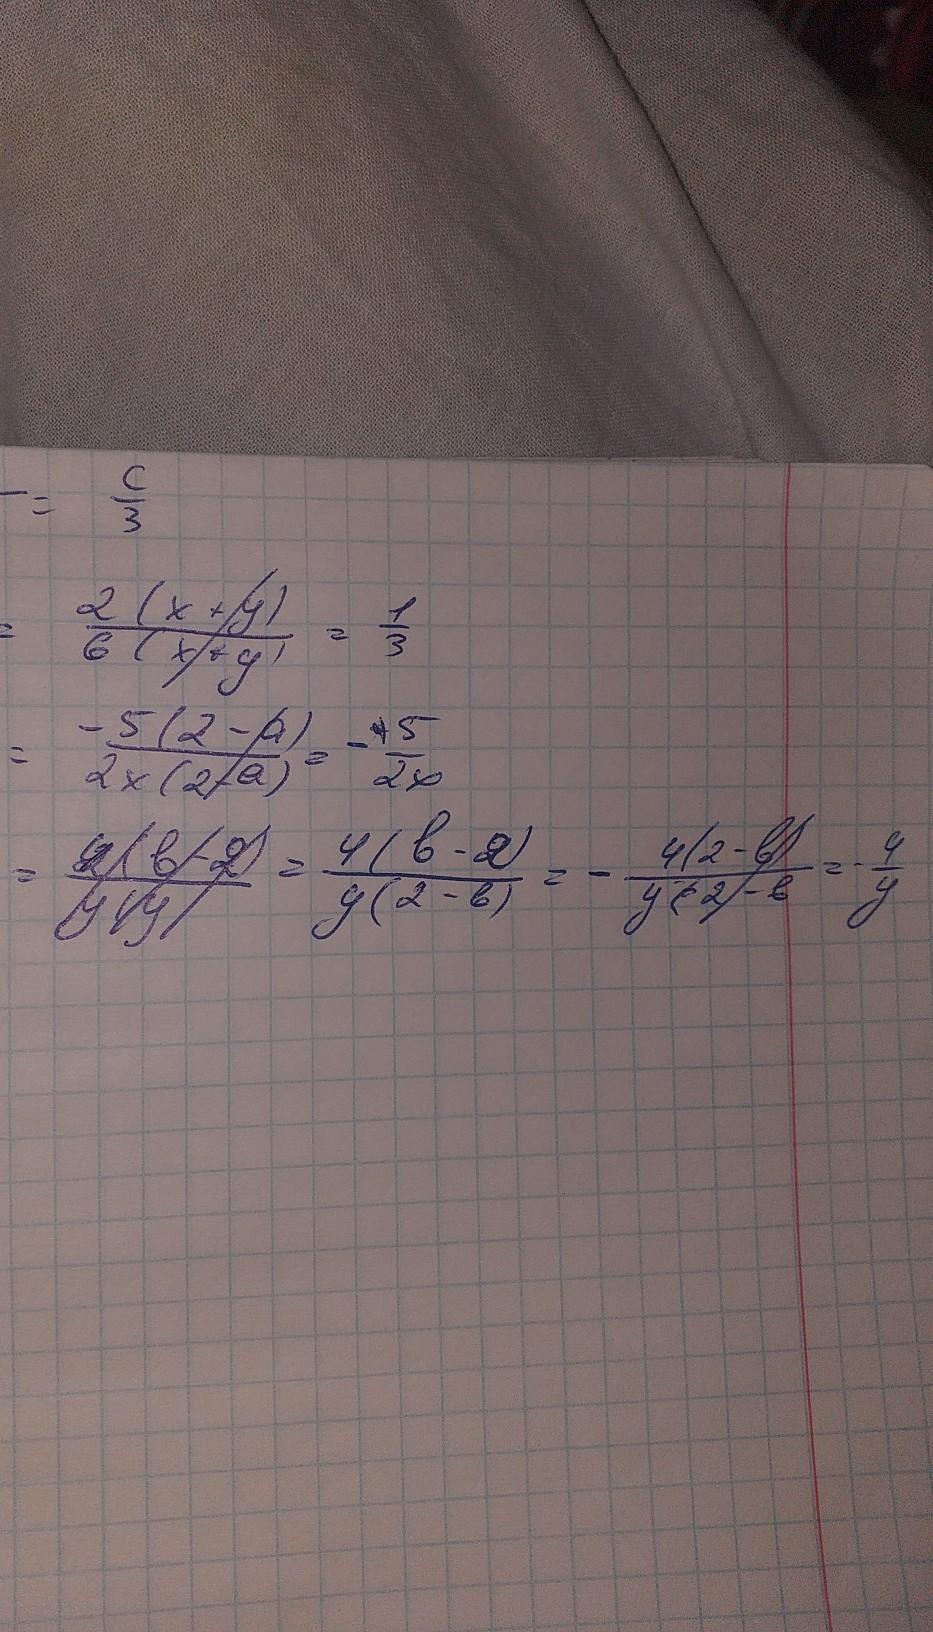 = c/3
= 2(x+y)/6(x+y) = 1/3
= -5(2-a)/2x(2-a) = -5/2x
= 4(b-2)/y(y) = 4(b-2)/y(2-b) = - 4(2-b)/y(2)-b = -4/y